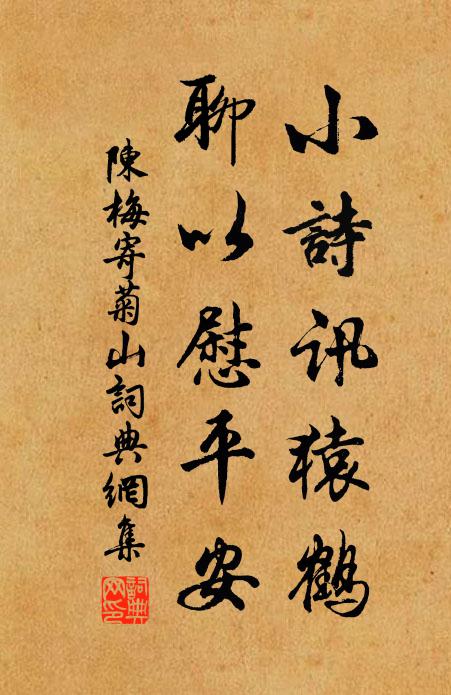 小詩訊猿鶴
聊以慰平安
陳梅寄菊山詞典網集
詞典
网印